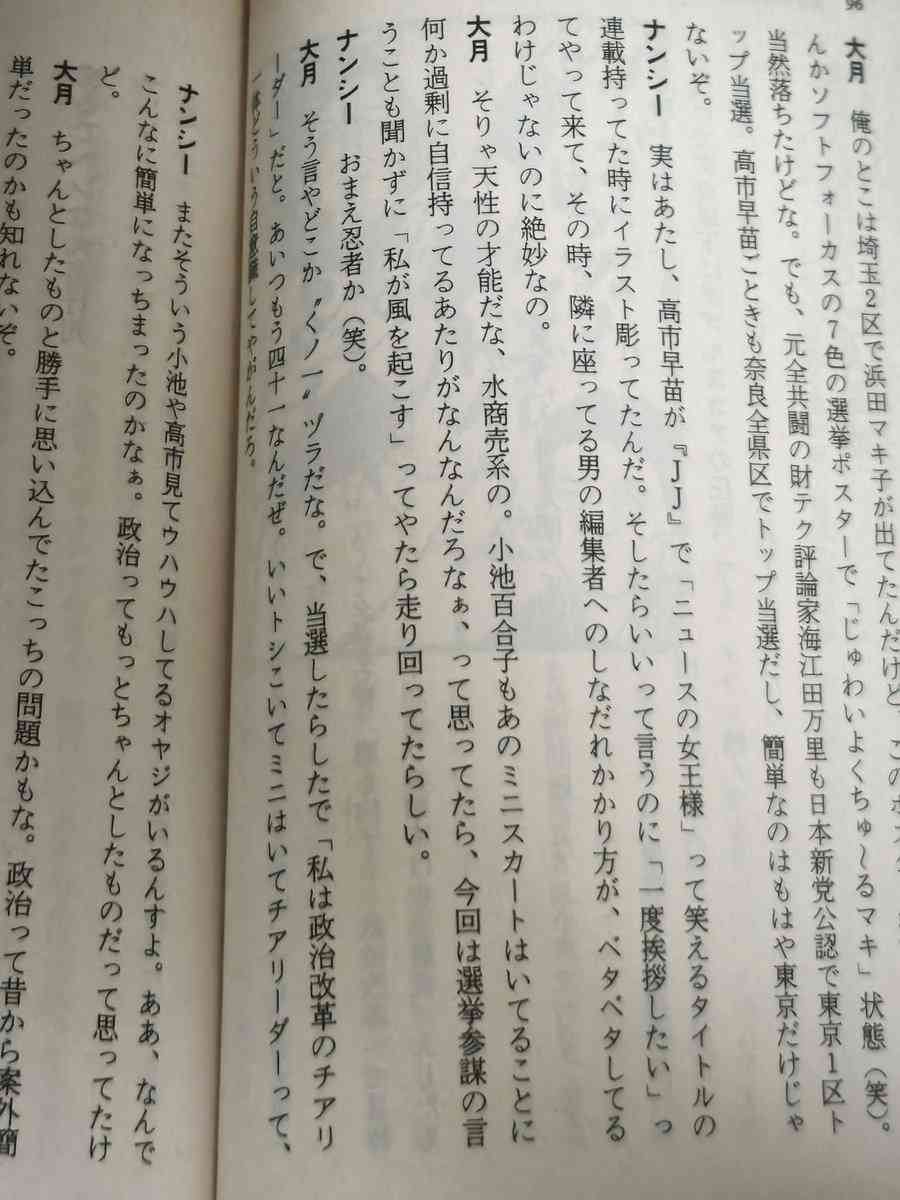 96
大月　俺のとこは埼玉2区で浜田マキ子が出てたんだけど、この
んかソフトフォーカスの7色の選挙ポスターで「じゅわいよくちゅ〜るマキ」状態（笑）。
当然落ちたけどな。でも、元全共闘の財テク評論家海江田万里も日本新党公認で東京1区ト
ップ当選。高市早苗ごときも奈良全県区でトップ当選だし、簡単なのはもはや東京だけじゃ
ないぞ。
ナンシー　実はあたし、高市早苗が『JJ』で「ニュースの女王様」って笑えるタイトルの
連載持ってた時にイラスト彫ってたんだ。そしたらいいって言うのに「一度挨拶したい」っ
てやって来て、その時、隣に座ってる男の編集者へのしなだれかかり方が、ベタベタしてる
わけじゃないのに絶妙なの。
大月　そりゃ天性の才能だな、水商売系の。小池百合子もあのミニスカートはいてることに
何か過剰に自信持ってるあたりがなんなんだろなぁ、って思ってたら、今回は選挙参謀の言
うことも聞かずに「私が風を起こす」ってやたら走り回ってたらしい。
ナンシー　おまえ忍者か（笑）。
大月　そう言やどこか〝くノ一〟ヅラだな。で、当選したらしたで「私は政治改革のチアリ
ーダー」だと。あいつもう四十一なんだぜ。いいトシこいてミニはいてチアリーダーって、
一体どういう自意識してやがんだろ。
ナンシー　またそういう小池や高市見てウハウハしてるオヤジがいるんすよ。ああ、なんで
こんなに簡単になっちまったのかなぁ。政治ってもっとちゃんとしたものだって思ってたけ
ど。
大月　ちゃんとしたものと勝手に思い込んでたこっちの問題かもな。政治って昔から案外簡
単だったのかも知れないぞ。